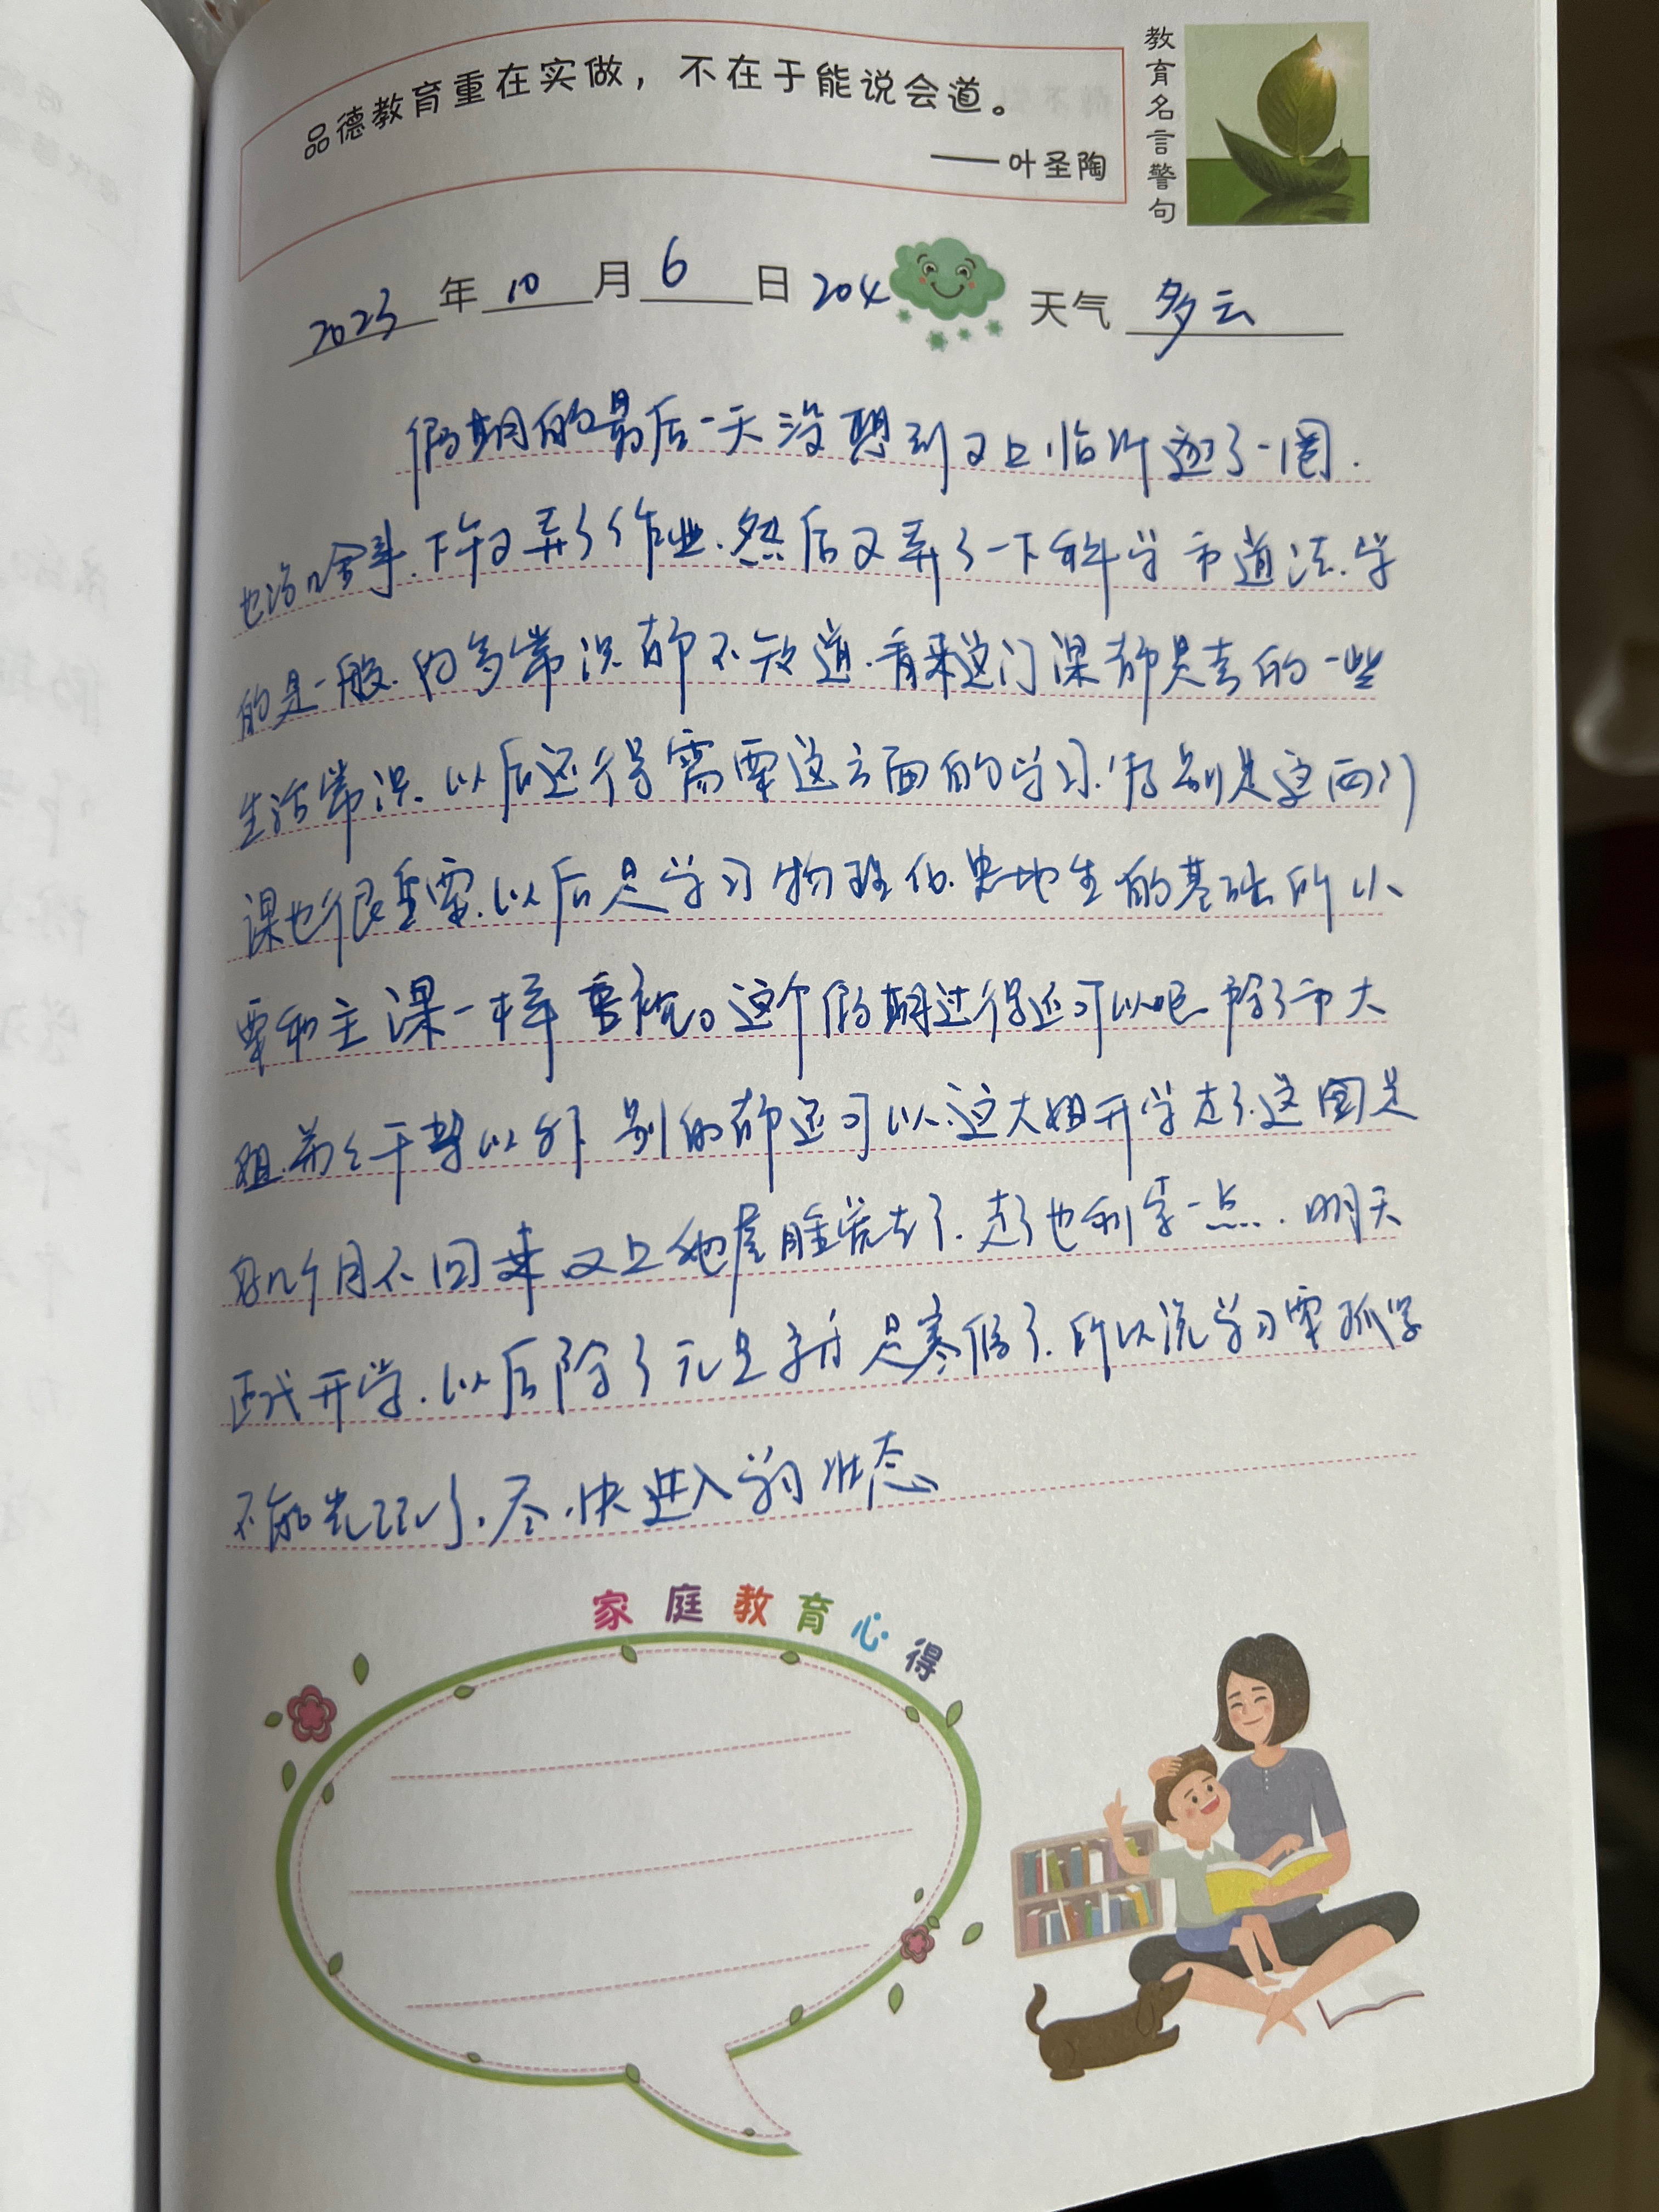 品德教育重在实做，不在于能说会道。
——叶圣陶
教育名言警句
2023年10月6日 204 天气 多云
假期的最后一天没想到又上临沂逛了一圈.
也没啥事.下午又弄了作业.然后又弄了一下科学和道法.学
的是一般.好多常识都不知道.看来这门课都是考的一些
生活常识.以后还得需要这方面的学习.特别是这两门
课也很重要.以后是学习物理化.史地生的基础所以
要和主课一样重视。这个假期过得还可以吧 除了和大
姐以外 别的都还可以.这大姐开学走了.这回是
好几个月不回来 又上她屋睡觉去了.走了也利索一点.明天
正式开学.以后除了元旦就是寒假了.所以说学习要抓紧
不能光玩了.尽快进入学习状态
家庭教育心得